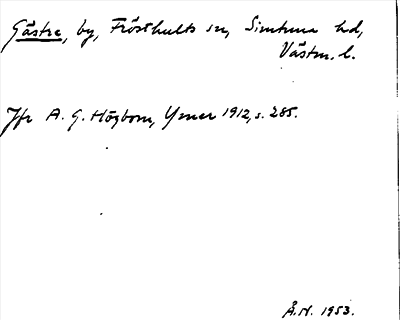 Gästre, by, Frösthults sn, Simtuna hd,
Västm. l.
Jfr A. G. Högbom, Ymer 1912, s. 285.
Å.N. 1953.